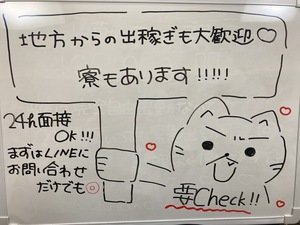 地方からの出稼ぎも大歓迎♡
寮もあります!!!!!
24h面接
OK!!!
まずはLINEに
お問い合わせ
だけでも◎
要Check!!